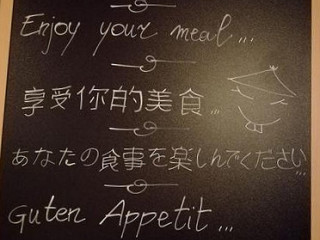 Enjoy your meal...
享受你的美食...
あなたの食事を楽しんでください...
Guten Appetit...